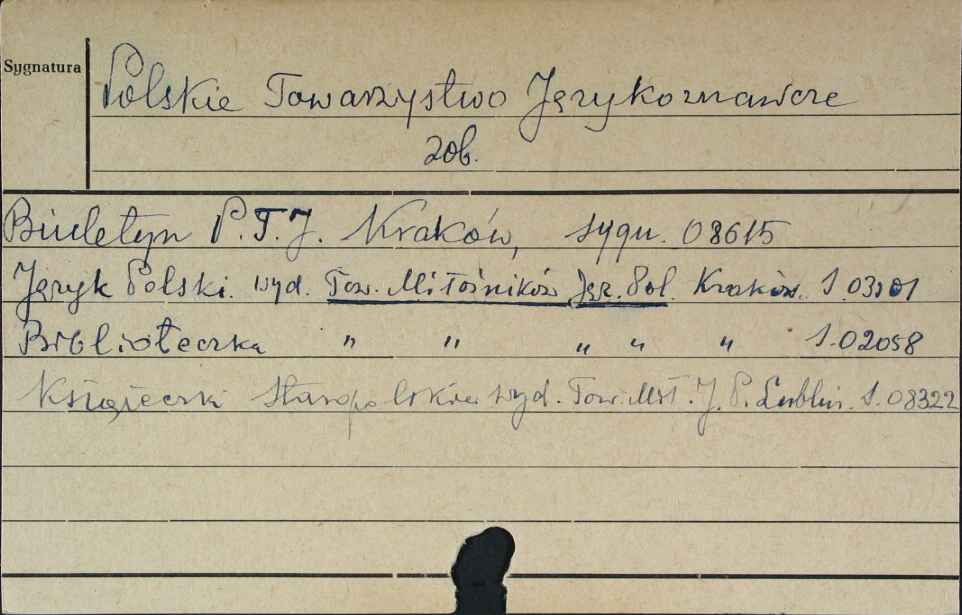 Sygnatura
Polskie Towarzystwo Językoznawcze
zob.
Biuletyn P.T.J. Kraków, sygn. 08615
Język Polski. wyd. Tow. Miłośników Jęz. Pol. Kraków. S.
Biblioteczka " " " " " S.02058
Książeczki Staropolskie wyd. Tow. Mił. J. P. Lublin. S.08322